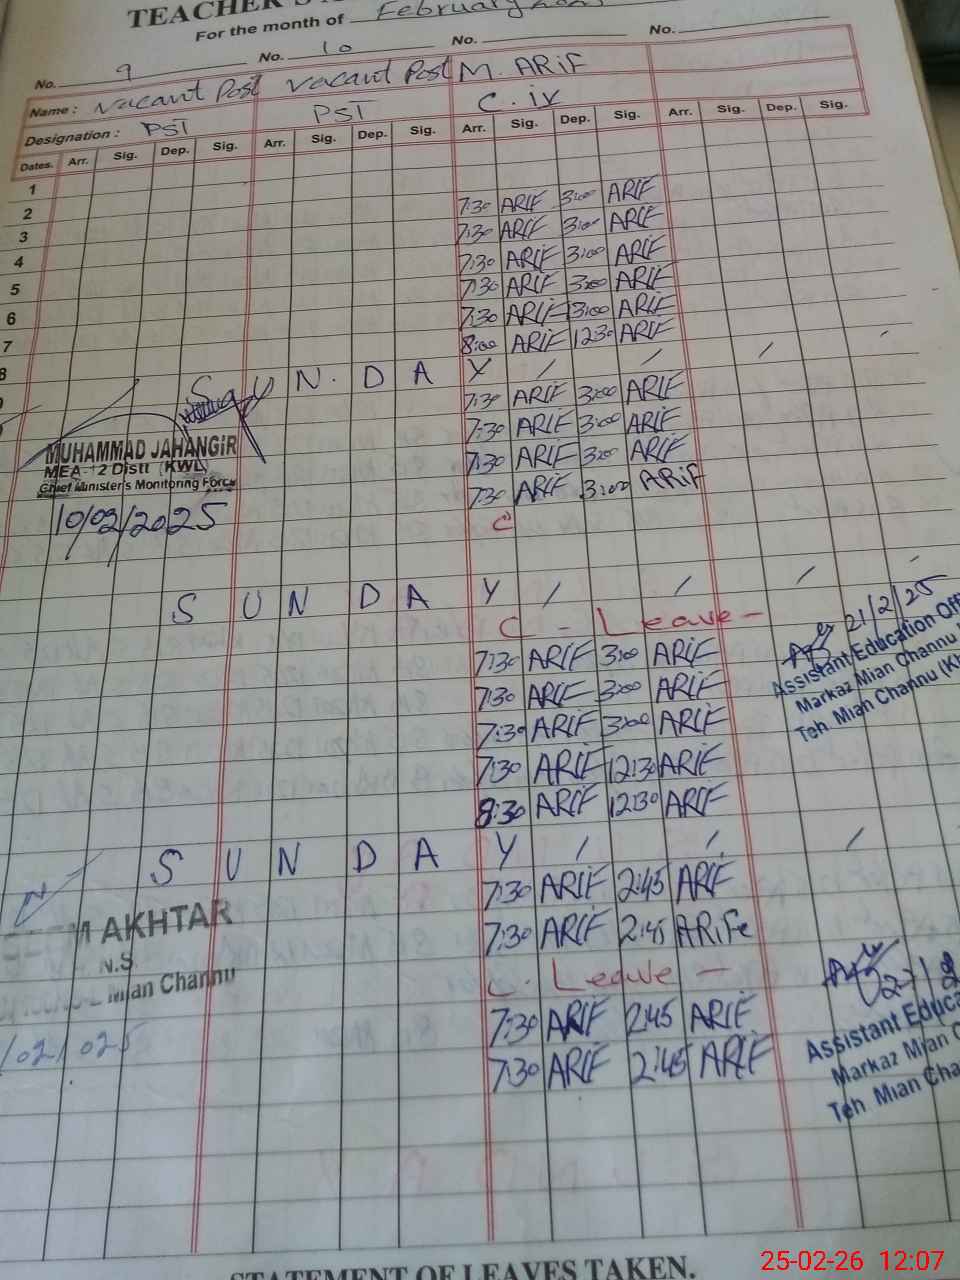 TEACHER'S
For the month of February
No. 9 No. 10 No. No.
Name : Vacant Post Vacant Post M. ARiF
Designation : PST PST C. iv
Dates. Arr. Sig. Dep. Sig. Arr. Sig. Dep. Sig. Arr. Sig. Dep. Sig. Arr. Sig. Dep. Sig.
1
2 7:30 ARIF 3:00 ARIF
3 7:30 ARIF 3:00 ARIF
4 7:30 ARIF 3:00 ARIF
5 7:30 ARIF 3:00 ARIF
6 7:30 ARIF 3:00 ARIF
7 8:00 ARIF 12:30 ARIF
8 S U N. D A Y / / / /
7:30 ARIF 3:00 ARIF
7:30 ARIF 3:00 ARIF
MUHAMMAD JAHANGIR
7:30 ARIF 3:00 ARIF
MEA-12 Distt (KWL)
Chief Minister's Monitoring Force
7:30 ARIF 3:00 ARiF
10/02/2025
C
S U N D A Y / / / /
C - Leave -
21/2/25
Assistant Education Off
Markaz Mian Channu
Teh. Mian Channu (Kh
7:30 ARIF 3:00 ARIF
7:30 ARIF 3:00 ARIF
7:30 ARIF 3:00 ARIF
7:30 ARIF 12:30 ARIF
8:30 ARIF 12:30 ARIF
S U N D A Y / / /
7:30 ARIF 2:45 ARIF
M AKHTAR
7:30 ARIF 2:45 ARiFe
N.S
Mian Channu
C. Leave -
7:30 ARIF 2:45 ARIF
/02/025
7:30 ARIF 2:45 ARIF
Assistant Educa
Markaz Mian C
Teh. Mian Cha
STATEMENT OF LEAVES TAKEN.
25-02-26 12:07